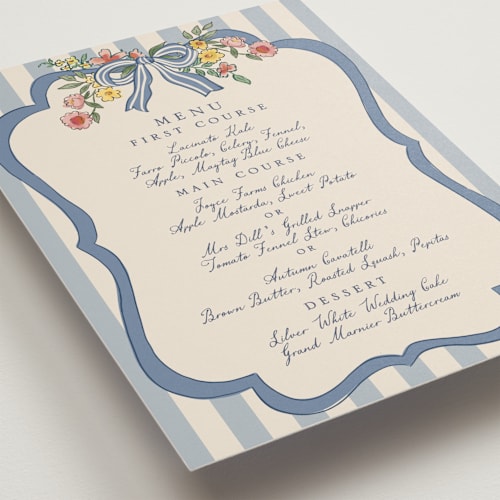 MENU
FIRST COURSE
Lacinato Kale
Farro Piccolo, Celery, Fennel,
Apple, Maytag Blue Cheese
MAIN COURSE
Joyce Farms Chicken
Apple Mostarda, Sweet Potato
OR
Mrs Dill's Grilled Snapper
Tomato Fennel Stew, Chicories
OR
Autumn Cavatelli
Brown Butter, Roasted Squash, Pepitas
DESSERT
Lilver White Wedding Cake
Grand Marnier Buttercream